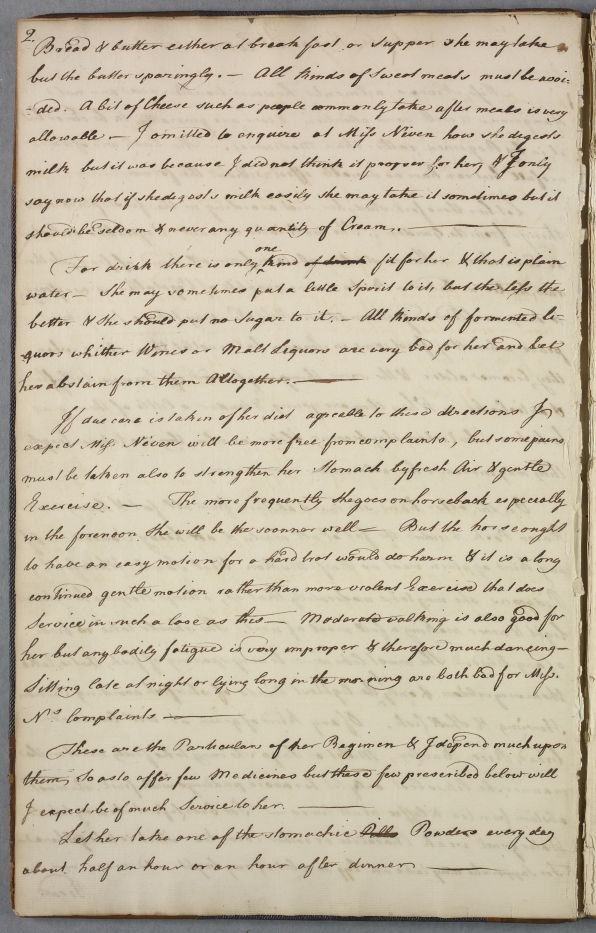 2.
Bread & butter either at breakfast or supper she may take
but the butter sparingly. — All kinds of Sweet meats must be avoi-
-ded. A bit of Cheese such as people commonly take after meals is very
allowable — I omitted to enquire at Miss Niven how she degests
milk but it was because I did not think it proper for her, & I only
say now that if she degests milk easily she may take it sometimes but it
should be seldom & never any quantity of Cream. —
For drink there is only one kind of drink fit for her & that is plain
water — She may sometimes put a little Spirit to it, but the less the
better & She should put no Sugar to it. — All kinds of formented li-
quors whither Wines or Malt Liquors are very bad for her and let
her abstain from them Altogether. —
If due care is taken of her diet agreable to these directions I
expect Miss Niven will be more free from complaints, but some pains
must be taken also to strengthen her Stomach by fresh Air & gentle
Exercise. — The more frequently she goes on horseback especially
in the forenoon She will be the soonner well — But the horse ought
to have an easy motion for a hard trot would do harm & it is a long
continued gentle motion rather than more violent Exercise that does
Service in such a Case as this — Moderate walking is also good for
her but any bodily fatigue is very improper & therefore much dancing —
Sitting late at night or lying long in the morning are both bad for Miss
N's complaints —
These are the Particulars of her Regimen & I depend much upon
them, So as to offer few Medicines but these few prescribed below will
I expect be of much Service to her. —
Let her take one of the stomachic Pills Powders every day
about half an hour or an hour after dinner —